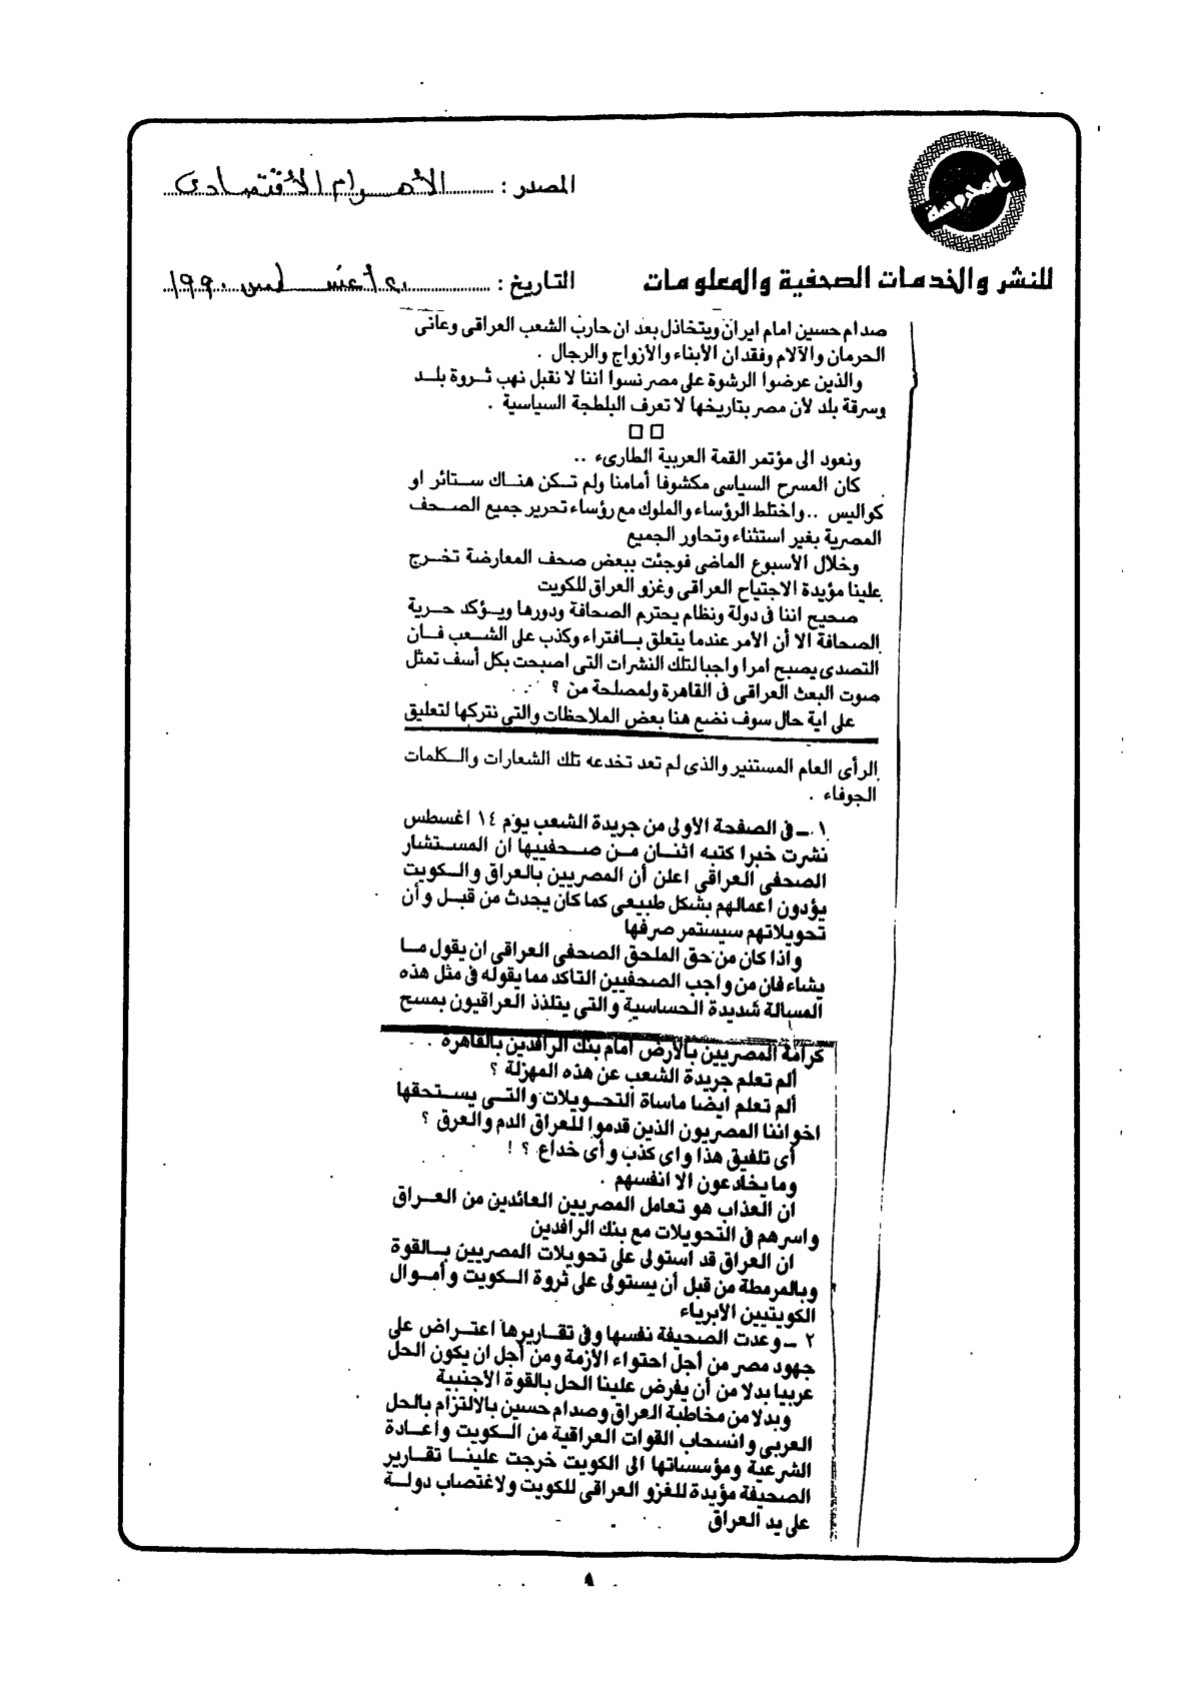 المحروسة
المصدر : الأهرام الاقتصادى
للنشر والخدمات الصحفية والمعلومات
التاريخ : ٢٠ أغسطس ١٩٩٠
صدام حسين امام ايران ويتخاذل بعد ان حارب الشعب العراقى وعانى
الحرمان والآلام وفقدان الأبناء والأزواج والرجال .
والذين عرضوا الرشوة على مصر نسوا اننا لا نقبل نهب ثروة بلد
وسرقة بلد لأن مصر بتاريخها لا تعرف البلطجة السياسية .
□ □
ونعود الى مؤتمر القمة العربية الطارىء ..
كان المسرح السياسى مكشوفا أمامنا ولم تكن هناك ستائر او
كواليس .. واختلط الرؤساء والملوك مع رؤساء تحرير جميع الصحف
المصرية بغير استثناء وتحاور الجميع
وخلال الأسبوع الماضى فوجئت ببعض صحف المعارضة تخرج
علينا مؤيدة الاجتياح العراقى وغزو العراق للكويت
صحيح اننا فى دولة ونظام يحترم الصحافة ودورها ويؤكد حرية
الصحافة الا أن الأمر عندما يتعلق بافتراء وكذب على الشعب فان
التصدى يصبح امرا واجبا لتلك النشرات التى اصبحت بكل أسف تمثل
صوت البعث العراقى فى القاهرة ولمصلحة من ؟
على اية حال سوف نضع هنا بعض الملاحظات والتى نتركها لتعليق
الرأى العام المستنير والذى لم تعد تخدعه تلك الشعارات والكلمات
الجوفاء .
١ - فى الصفحة الأولى من جريدة الشعب يوم ١٤ اغسطس
نشرت خبرا كتبه اثنان من صحفييها ان المستشار
الصحفى العراقى اعلن أن المصريين بالعراق والكويت
يؤدون اعمالهم بشكل طبيعى كما كان يحدث من قبل وأن
تحويلاتهم سيستمر صرفها
واذا كان من حق الملحق الصحفى العراقى ان يقول ما
يشاء فان من واجب الصحفيين التاكد مما يقوله فى مثل هذه
المسالة شديدة الحساسية والتى يتلذذ العراقيون بمسح
كرامة المصريين بالأرض امام بنك الرافدين بالقاهرة .
ألم تعلم جريدة الشعب عن هذه المهزلة ؟
ألم تعلم ايضا ماساة التحويلات والتى يستحقها
اخواننا المصريون الذين قدموا للعراق الدم والعرق ؟
أى تلفيق هذا واى كذب وأى خداع ؟ !
وما يخادعون الا انفسهم .
ان العذاب هو تعامل المصريين العائدين من العراق
واسرهم فى التحويلات مع بنك الرافدين
ان العراق قد استولى على تحويلات المصريين بالقوة
وبالمرمطة من قبل أن يستولى على ثروة الكويت وأموال
الكويتيين الأبرياء
٢ - وعدت الصحيفة نفسها وفى تقاريرها اعتراض على
جهود مصر من أجل احتواء الأزمة ومن أجل ان يكون الحل
عربيا بدلا من أن يفرض علينا الحل بالقوة الأجنبية
وبدلا من مخاطبة العراق وصدام حسين بالالتزام بالحل
العربى وانسحاب القوات العراقية من الكويت واعادة
الشرعية ومؤسساتها الى الكويت خرجت علينا تقارير
الصحيفة مؤيدة للغزو العراقى للكويت ولاغتصاب دولة
على يد العراق
٨